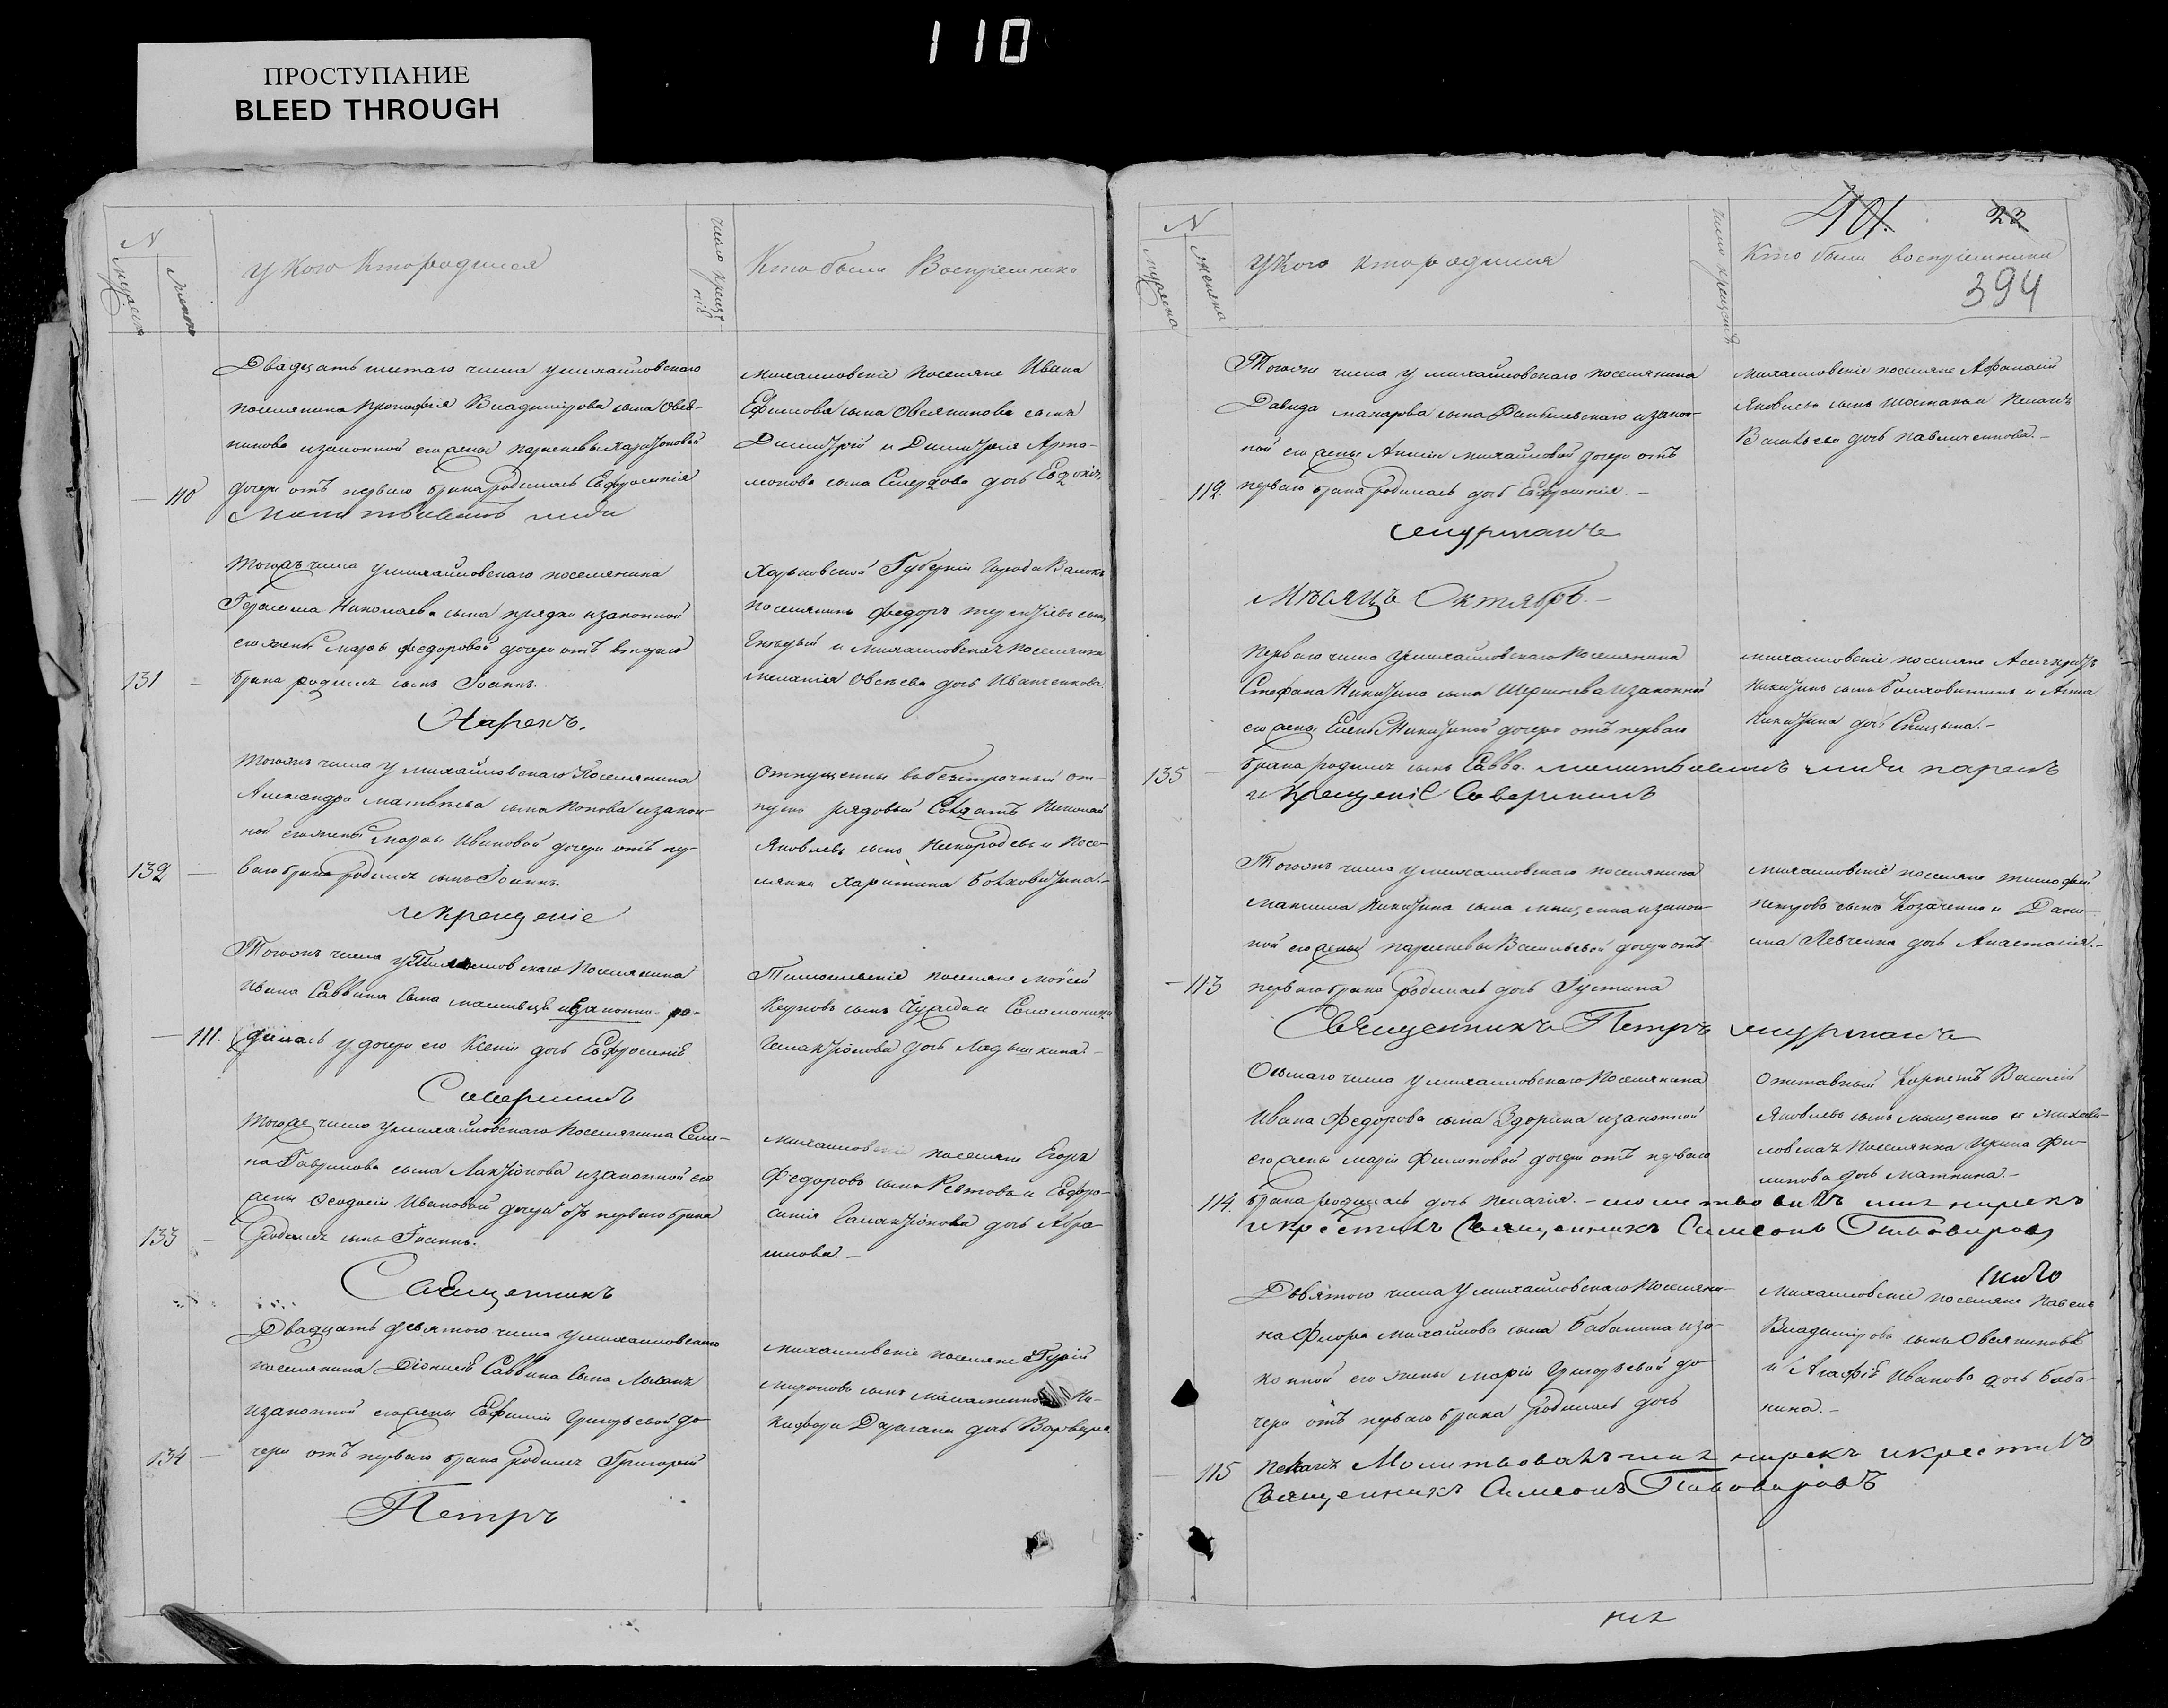 110
ПРОСТУПАНИЕ
BLEED THROUGH
N
мужеска
женска
у кого кто родился
число крещенія
Кто были Воспріемники
Двадцать шестаго числа у михайловскаго
поселянина Прокофія Владимірова сына Овся-
никова и законной его жены Параскевы Харитоновой
110 дочери отъ перваго брака родилась Евфросинія
Молитвовалъ имя
михайловскіе поселяне Ивана
Ефимова сына Овсяникова сынъ
Димитрій и Димитрія Арта-
монова сына дочь Евдокія
Тогожъ числа у михайловскаго поселянина
Герасима Николаева сына Прядки и законной
его жены Марѳы Федоровой дочери отъ втораго
131 брака родился сынъ Іоаннъ.
Нарекъ.
Харьковской Губерніи Города Валокъ
поселянинъ Федоръ сынъ
Гнедый и михайловская поселянка
меланія Овсѣева дочь Иванченкова
Тогожъ числа у михайловскаго Поселянина
Александра Матвѣева сына Попова и закон-
ной его жены Марѳы Ивановой дочери отъ пер-
132 ваго брака родился сынъ Іоаннъ.
и крещеніе
Отпущенный въ безсрочный от-
пускъ рядовый Солдатъ Николай
Яковлевъ сынъ и посе-
лянка Харитина Болховитина.-
Тогожъ числа у Поселянина
Ивана Саввина Сына и законно-ро-
111. дилась у дочери его Ксеніи дочь Евфросинія
Совершилъ
поселяне Моѵсей
Карповъ сынъ и Соломонида
Галактіонова дочь Ладышкина.-
Тогоже числа у михайловскаго Поселянина Семе-
на Гаврилова сына Лактіонова и законной его
жены Ѳеодосіи Ивановой дочери отъ перваго брака
133 родился сынъ Іоаннъ.
Священникъ
михайловскіе поселяне Егоръ
Федоровъ сынъ и Евфро-
синія Галактіонова дочь Абра-
мова.-
Двадцать девятого числа у михайловскаго
поселянина Діонисія Саввина Сына
и законной его жены Евфиміи Григорьевой до-
134 чери отъ перваго брака родился Григорій
Петръ
михайловскіе поселяне Гурій
Мироновъ сынъ и Ни-
кифора Дарагана дочь Варвара
401. 23
N
мужеска
женска
у кого кто родился
число крещенія
Кто были воспріемники
394
Тогоже числа у михайловскаго поселянина
Давида макарова сына и закон-
ной его жены Анны михайловой дочери отъ
112. перваго брака родилась дочь Евфросинія.-
михайловскіе поселяне Афанасій
Яковлевъ сынъ и Пелагія
Васильева дочь Павличенкова.-
Мѣсяцъ Октябрь
Перваго числа у михайловскаго Поселянина
Стефана Никитина сына и законной
его жены Елены Никитиной дочери отъ перваго
135 брака родился сынъ Савва. молитвовалъ имя нарекъ
и Крещеніе Совершилъ
михайловскіе поселяне Александръ
Никитинъ сынъ Болховитинъ и Анна
Никитина дочь Спицына.-
Тогожъ числа у михайловскаго поселянина
Максима Никитина сына и закон-
ной его жены Параскевы Васильевой дочери отъ
113 перваго брака родилась дочь Іустина
Священникъ Петръ
михайловскіе поселяне Тимофей
Петровъ сынъ Козаченко и Дани-
ила Левченка дочь Анастасія.-
Осьмаго числа у михайловскаго Поселянина
Ивана Федорова сына Здорика и законной
его жены Маріи Филиповой дочери отъ перваго
114. брака родилась дочь Пелагія.- молитвовалъ имя нарекъ
и крестилъ Священникъ Симеонъ Пивоваровъ
Отставный Корнетъ Василій
Яковлевъ сынъ и михай-
ловская Поселянка Ирина Фи-
липова дочь
Девятого числа у михайловскаго Поселяни-
на Флора михайлова сына Бабанина и за-
конной его жены Маріи Григорьевой до-
чери отъ перваго брака родилась дочь
115 Пелагія Молитвовалъ имя нарекъ и крестилъ
Священникъ Симеонъ Пивоваровъ
михайловскіе поселяне Павелъ
Владиміровъ сынъ Овсяниковъ
и Агафія Иванова дочь Баба-
нина.-